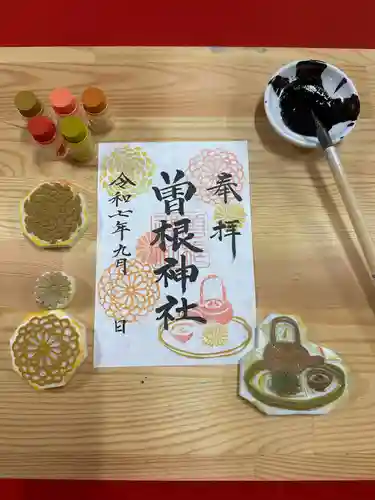 奉拝
曽根神社
令和七年九月 日